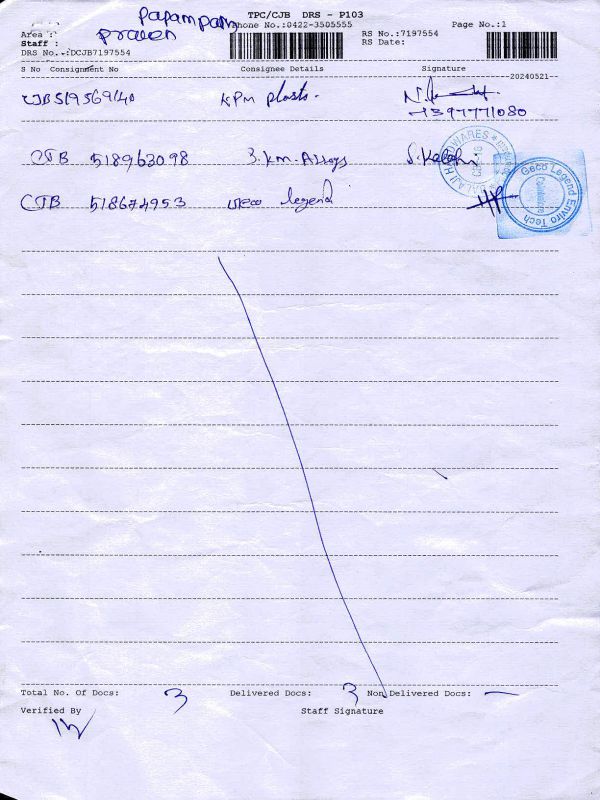 TPC/CJB DRS - P103
Papampatti
Area : Phone No.:0422-3505555 Page No.:1
Staff : Praveen RS No.:7197554
RS Date:
DRS No.:DCJB7197554
S No Consignment No Consignee Details Signature
20240521
CJB 519569140 KPM plasts.
7397771080
CJB 518963098 3.km. Alloys S.
BALAJI HARDWARES
CBE-16
CJB 518674953 Geco legend
Geco Legend Enviro Tech
Coimbatore
Total No. Of Docs: 3 Delivered Docs: 3 Non Delivered Docs: —
Verified By Staff Signature